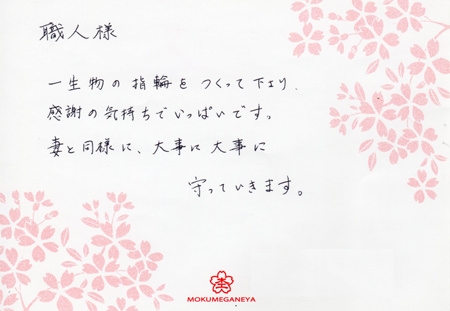 職人様
一生物の指輪をつくって下さり、
感謝の気持ちでいっぱいです。
妻と同様に、大事に大事に
守っていきます。
MOKUMEGANEYA